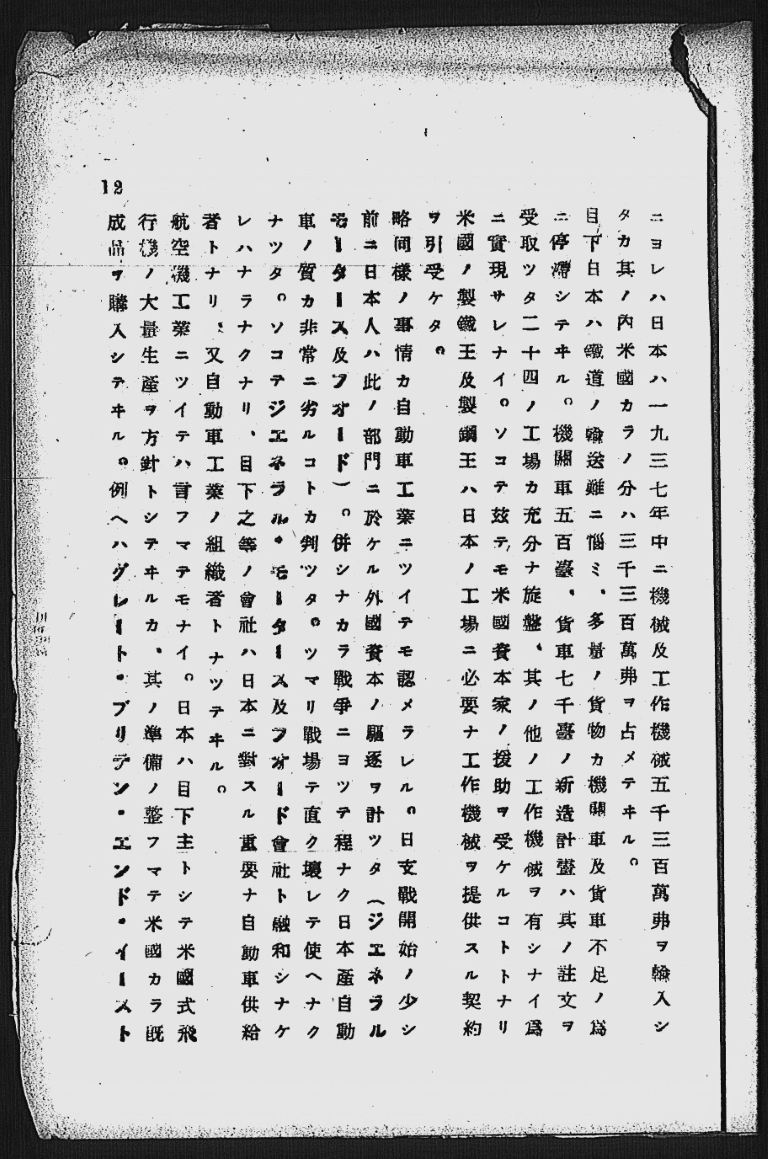 ニヨレハ日本ハ一九三七年中ニ機械及工作機械五千三百萬弗ヲ輸入シ
タカ其ノ內米國カラノ分ハ三千三百萬弗ヲ占メテヰル。
目下日本ハ鐵道ノ輸送難ニ惱ミ、多量ノ貨物カ機關車及貨車不足ノ爲
ニ停滯シテヰル。機關車五百臺、貨車七千臺ノ新造計畫ハ其ノ註文ヲ
受取ツタ二十四ノ工場カ充分ナ旋盤、其ノ他ノ工作機械ヲ有シナイ爲
ニ實現サレナイ。ソコテ玆テモ米國資本家ノ援助ヲ受ケルコトトナリ
米國ノ製鐵王及製鋼王ハ日本ノ工場ニ必要ナ工作機械ヲ提供スル契約
ヲ引受ケタ。
略同樣ノ事情カ自動車工業ニツイテモ認メラレル。日支戰開始ノ少シ
前ニ日本人ハ此ノ部門ニ於ケル外國資本ノ驅逐ヲ計ツタ（ジエネラル
モータース及フオード）。併シナカラ戰爭ニヨツテ程ナク日本產自動
車ノ質カ非常ニ劣ルコトカ判ツタ。ツマリ戰場テ直ク壞レテ使ヘナク
ナツタ。ソコテジエネラル・モータース及フオード會社ト融和シナケ
レハナラナクナリ、目下之等ノ會社ハ日本ニ對スル重要ナ自動車供給
者トナリ、又自動車工業ノ組織者トナツテヰル。
航空機工業ニツイテハ言フマテモナイ。日本ハ目下主トシテ米國式飛
行機ノ大量生產ヲ方針トシテヰルカ、其ノ準備ノ整フマテ米國カラ既
成品ヲ購入シテヰル。例ヘハグレート・ブリテン・エンド・イースト
12